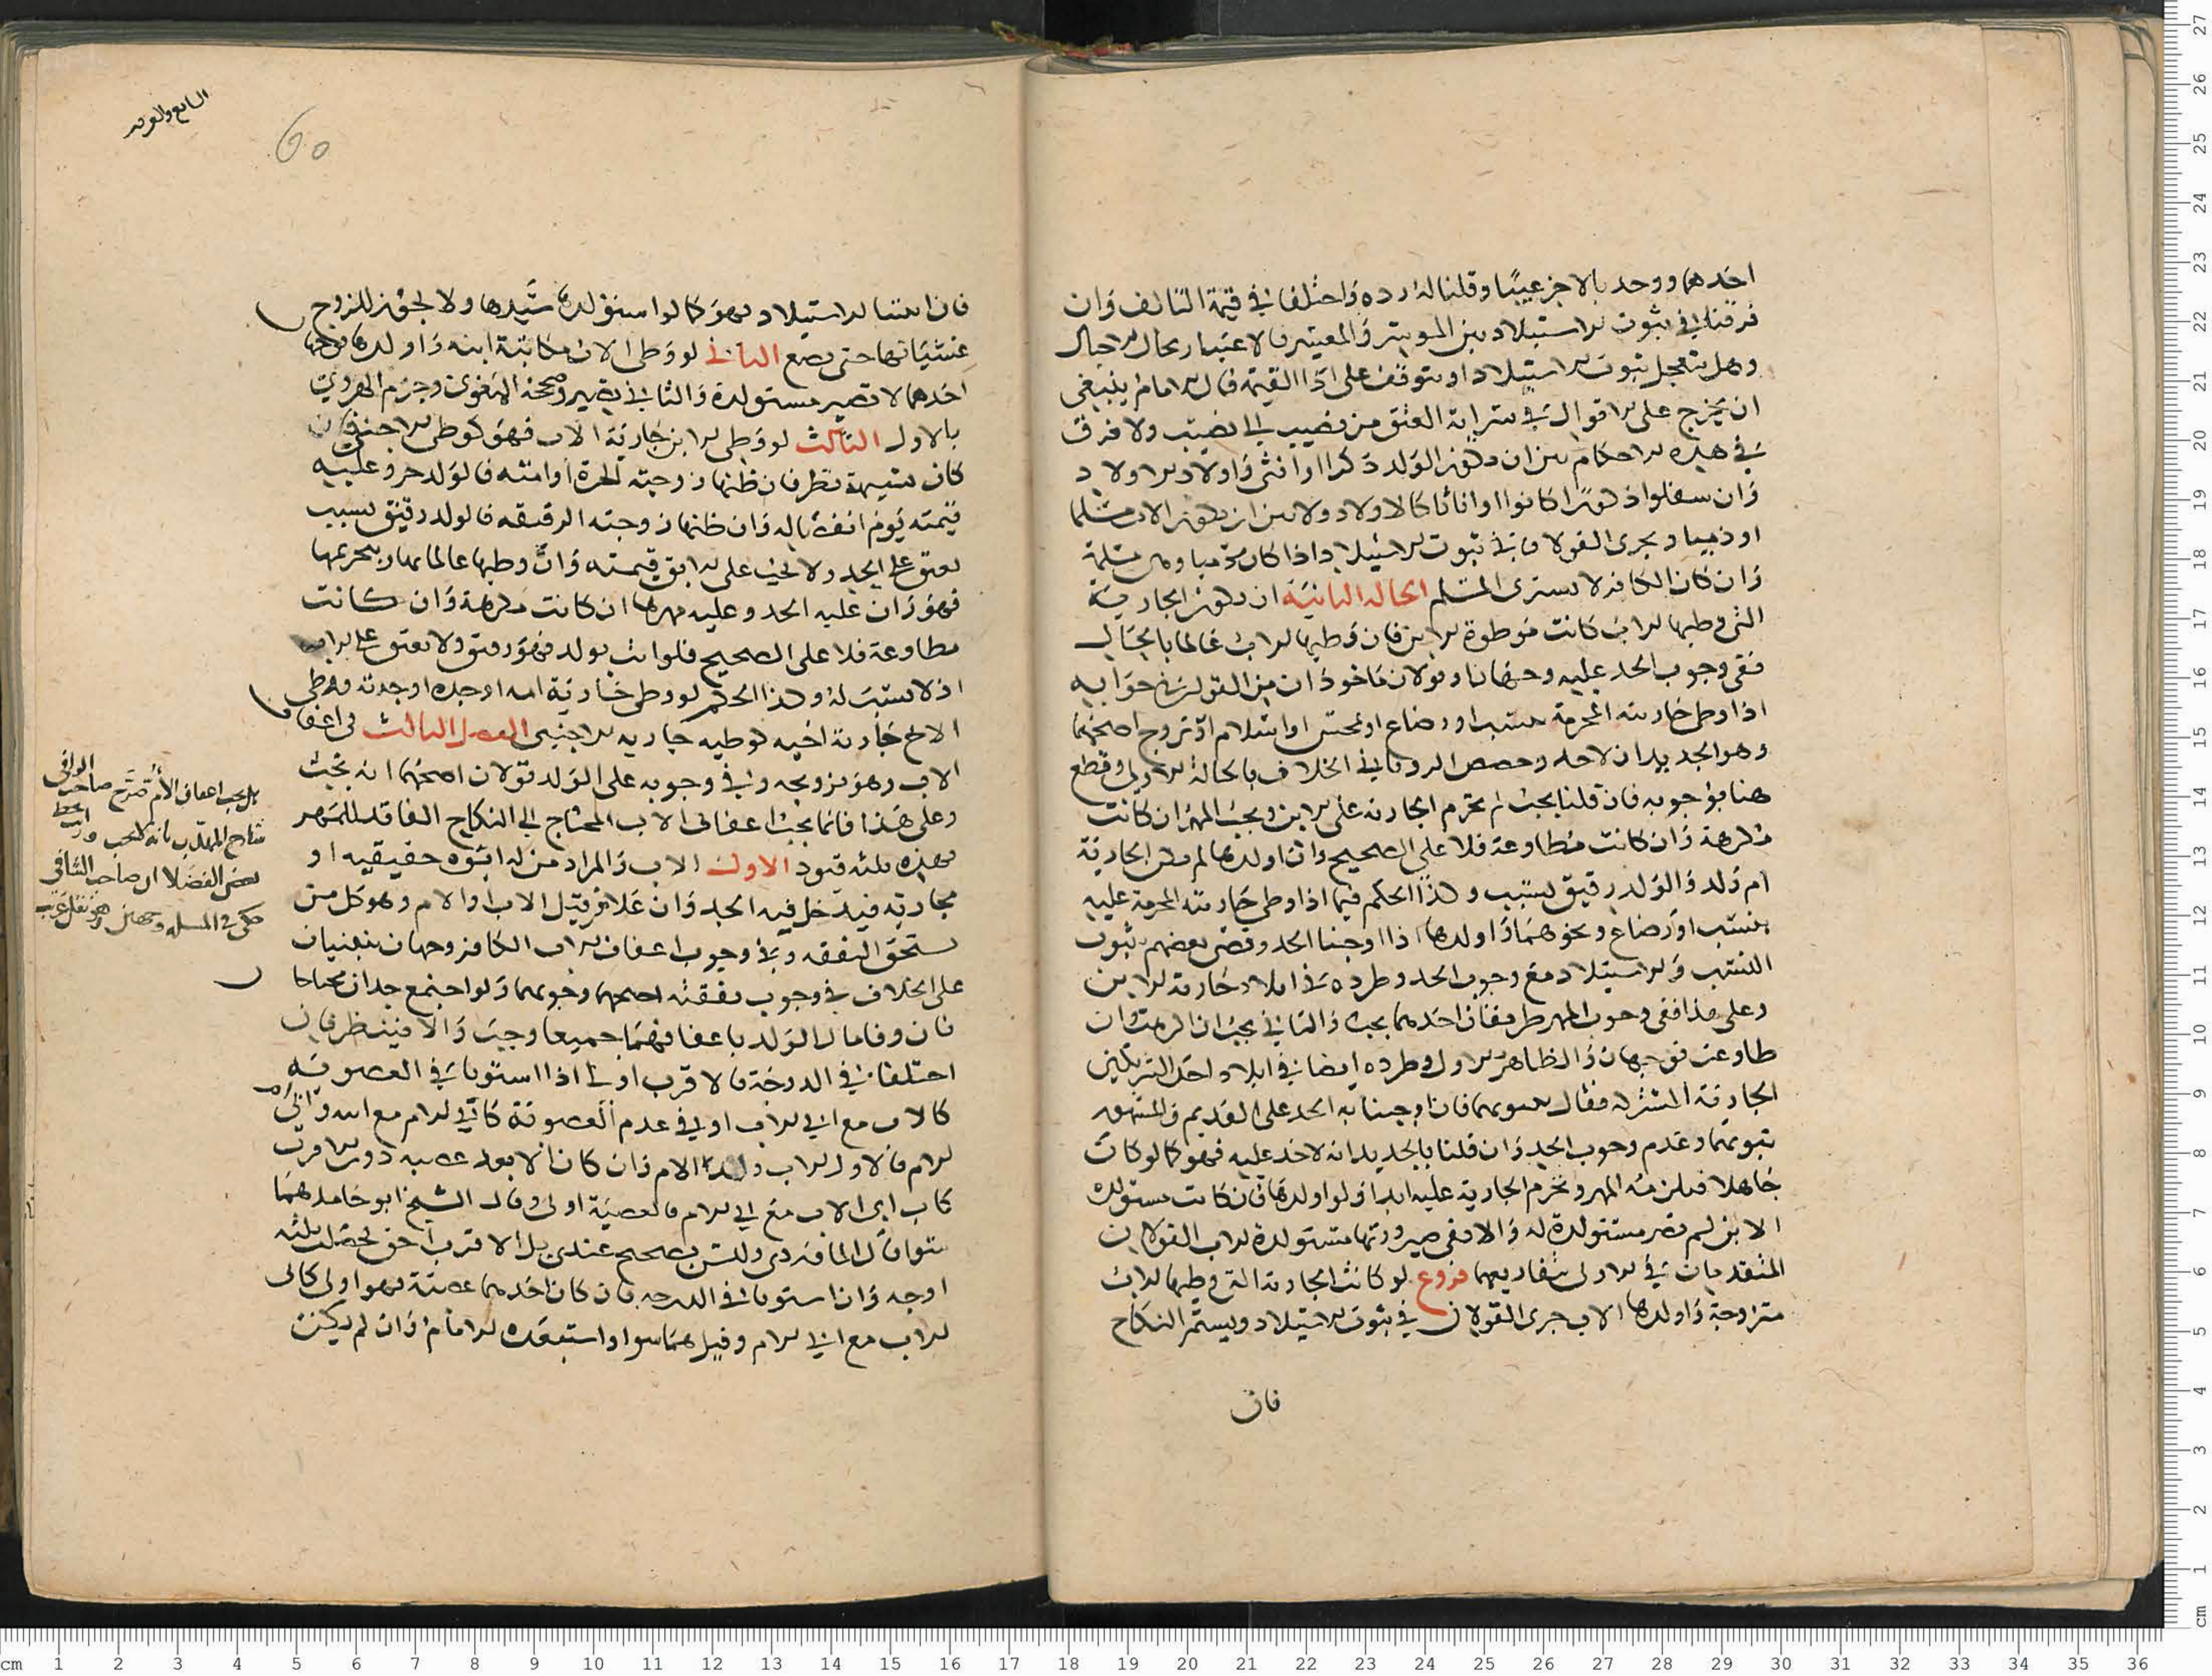 احدهما ووجد بالاخر عيبا وقلنا له رده واختلفا في قيمة التالف وان
فرقنا في ثبوت الاستيلاد بين الموسر والمعسر فالاعتبار بحال الاحبال
وهل يتعجل ثبوت الاستيلاد او يتوقف على اداء القيمة قال الامام ينبغي
ان يخرج على الاقوال في سراية العتق من نصيب الى نصيب ولا فرق
في هذه الاحكام بين ان يكون الولد ذكرا او انثى واولاد الاولاد
وان سفلوا ذكورا كانوا او اناثا كالاولاد ولا بين ان يكون الاب مسلما
او ذميا ويجرى القولان في ثبوت الاستيلاد اذا كان ذميا وهي مسلمة
وان كان الكافر لا يشترى المسلم الحالة الثانية ان يكون الجارية
التي وطيها الاب كانت موطوة الابن فان وطيها الاب عالما بالحال
ففي وجوب الحد عليه وجهان او قولان ماخوذان من القولين في جوابه
اذا وطى جاريته المحرمة بنسب او رضاع او تمجس او اسلام او تزوج اصحهما
وهو الجديد ان لا حد وخصص الروياني الخلاف بالحالة الاولى وقطع
هنا بوجوبه فان قلنا يجب لم تحرم الجارية على الابن ويجب المهر ان كانت
مكرهة وان كانت مطاوعة فلا على الصحيح وان اولدها لم تصر الجارية
ام ولد والولد رقيق نسيب وكذا الحكم فيما اذا وطى جاريته المحرمة عليه
بنسب او رضاع ونحوهما واولدها اذا اوجبنا الحد وقضى بعضهم بثبوت
النسب والاستيلاد مع وجوب الحد وطرده في ايلاد جارية الابن
وعلى هذا ففي وجوب المهر طريقان احدهما يجب والثاني يجب ان اكرهت وان
طاوعت فوجهان والظاهر الاول وطرده ايضا في ايلاد احد الشريكين
الجارية المشتركة فقال بثبوتهما فان اوجبنا به الحد على القديم والمشهور
ثبوتهما وعدم وجوب الحد وان قلنا بالجديد انه لا حد عليه فهو كما لو كان
جاهلا فيلزمه المهر وتحرم الجارية عليه ابدا ولو اولدها فان كانت مستولدة
الابن لم تصر مستولدة له والا ففي صيرورتها مستولدة الاب القولان
المتقدمان في الاولى بتفاريعهما فروع لو كانت الجارية التي وطيها الاب
متزوجة واولدها الاب جرى القولان في ثبوت الاستيلاد ويستمر النكاح
فان
60
فان اثبتنا الاستيلاد فهو كما لو استولدها سيدها ولا يجوز للزوج
غشيانها حتى تضع الثاني لو وطى الاب مكاتبة ابنه واولدها فوجهان
احدهما لا تصير مستولدة والثاني تصير وصححه البغوي وجزم الهروي
بالاول الثالث لو وطى الابن جارية الاب فهو كوطى الاجنبي فان
كان بشبهة نظر فان ظنها زوجته الحرة او امته فالولد حر وعليه
قيمته يوم انفصاله وان ظنها زوجته الرقيقة فالولد رقيق نسيب
يعتق على الجد ولا يجب على الابن قيمته وان وطيها عالما بها وبتحريمها
فهو زان عليه الحد وعليه مهرها ان كانت مكرهة وان كانت
مطاوعة فلا على الصحيح فلو اتت بولد فهو رقيق ولا يعتق على الاب
اذ لا نسب له وكذا الحكم لو وطى جارية امه او جده او جدته ووطى
الاخ جارية اخيه كوطيه جارية الاجنبي الفصل الثالث في اعفاف
الاب وهو تزويجه وفي وجوبه على الولد قولان اصحهما انه يجب
وعلى هذا فانما يجب اعفاف الاب المحتاج الى النكاح الفاقد للمهر
فهذه ثلثة قيود الاول الاب والمراد من له ابوة حقيقية او
مجازية فيدخل فيه الجد وان علا من قبل الاب او الام وهو كل من
يستحق النفقة وفي وجوب اعفاف الاب الكافر وجهان ينبنيان
على الخلاف في وجوب نفقته اصحهما وجوبهما ولو اجتمع جدان محتاجا
فان وفا مال الولد باعفافهما جميعا وجب والا فينظر فان
اختلفا في الدرجة فالاقرب اولى اذا استويا في العصوبة
كالاب مع ابي الاب او في عدم العصوبة كابي الام مع ابيه وابي
الام فالاول اب والد الام وان كان الابعد عصبة دون الاقرب
كاب ابي الاب مع ابي الام فالعصبة اولى وقال الشيخ ابو حامد هما
سوا قال الماوردي وليس بصحيح عندي بل الاقرب احق تحصلت ثلثة
اوجه وان استويا في الدرجة فان كان احدهما عصبة فهو اولى كابي
الاب مع ابي الام وقيل هما سوا واستبعده الامام وان لم يكن
هل يجب اعفاف الام صرح صاحب الوافي
شارح المهذب بانه لا يجب
بعض الفضلا ان صاحب الشافي
حكى في المسله وجهين وهو نقل غريب